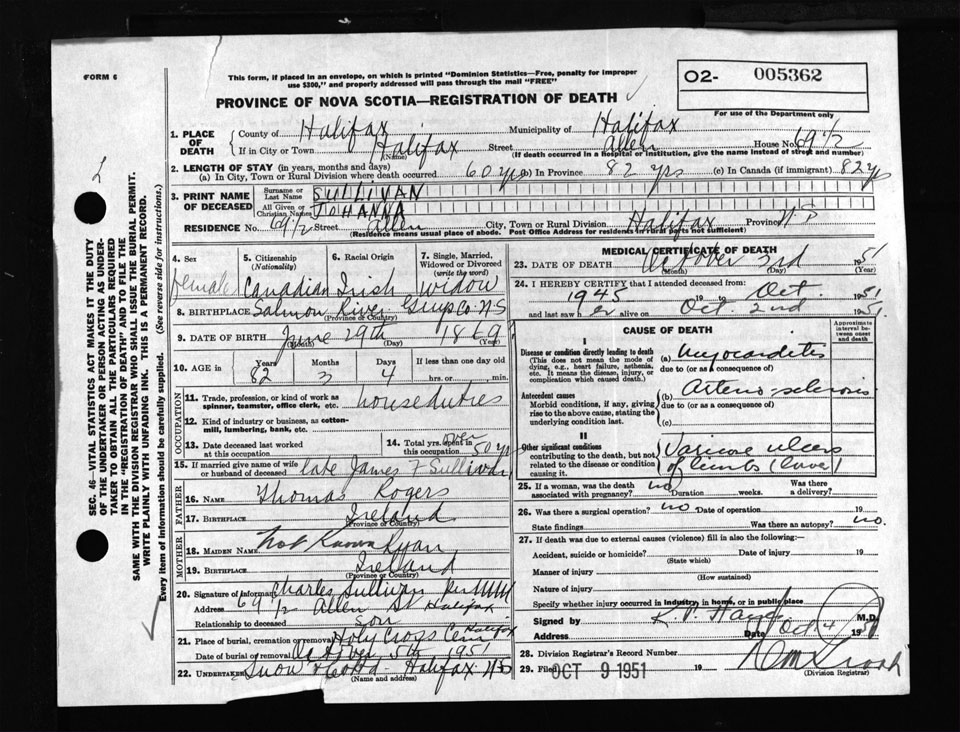 FORM 6
This form, if placed in an envelope, on which is printed "Dominion Statistics—Free, penalty for improper
use $300," and properly addressed will pass through the mail "FREE"
O2- 005362
For use of the Department only
PROVINCE OF NOVA SCOTIA—REGISTRATION OF DEATH
1. PLACE OF DEATH
County of Halifax Municipality of Halifax
If in City or Town Halifax Street Allen House No. 69 1/2
(Name) (If death occurred in a hospital or institution, give the name instead of street and number)
2. LENGTH OF STAY (in years, months and days)
(a) In City, Town or Rural Division where death occurred 60 yrs (b) In Province 82 yrs (c) In Canada (if immigrant) 82 yrs
3. PRINT NAME OF DECEASED
Surname or Last Name SULLIVAN
All Given or Christian Names JOHANNA
RESIDENCE No. 69 1/2 Street Allen City, Town or Rural Division Halifax Province N S
(Residence means usual place of abode. Post Office Address for residents in rural parts not sufficient)
4. Sex
female
5. Citizenship (Nationality)
Canadian
6. Racial Origin
Irish
7. Single, Married, Widowed or Divorced (write the word)
Widow
8. BIRTHPLACE Salmon River Guys Co. N-S
(Province or Country)
9. DATE OF BIRTH June 29th 1869
(Month) (Day) (Year)
10. AGE in
Years 82
Months 3
Days 4
If less than one day old
hrs. or min.
OCCUPATION
11. Trade, profession, or kind of work as spinner, teamster, office clerk, etc. house duties
12. Kind of industry or business, as cotton-mill, lumbering, bank, etc.
13. Date deceased last worked at this occupation
14. Total yrs. spent in this occupation over 50 yr
15. If married give name of wife or husband of deceased late James F Sullivan
FATHER
16. Name Thomas Rogers
17. BIRTHPLACE Ireland
(Province or Country)
MOTHER
18. MAIDEN NAME Not Known Ryan
19. BIRTHPLACE Ireland
(Province or Country)
20. Signature of informant Charles Sullivan
Address 69 1/2 Allen St Halifax
Relationship to deceased son
21. Place of burial, cremation or removal Holy Cross Cem Halifax
Date of burial or removal October 5th 1951
22. UNDERTAKER Snow & Co Ltd - Halifax N S
(Name and address)
MEDICAL CERTIFICATE OF DEATH
23. DATE OF DEATH October 3rd 1951
(Month) (Day) (Year)
24. I HEREBY CERTIFY that I attended deceased from:
1945 19 to Oct. 1951
and last saw her alive on Oct. 2nd 1951.
CAUSE OF DEATH
Approximate interval between onset and death
I
Disease or condition directly leading to death
(This does not mean the mode of dying, e.g., heart failure, asthenia, etc. It means the disease, injury, or complication which caused death.)
(a) Myocarditis
due to (or as a consequence of)
Antecedent causes
Morbid conditions, if any, giving rise to the above cause, stating the underlying condition last.
(b) Arterio-sclerosis
due to (or as a consequence of)
(c)
II
Other significant conditions
contributing to the death, but not related to the disease or condition causing it.
Varicose ulcers
of limbs (lower)
25. If a woman, was the death associated with pregnancy? no Duration weeks. Was there a delivery?
26. Was there a surgical operation? no Date of operation 19
State findings Was there an autopsy? no.
27. If death was due to external causes (violence) fill in also the following:—
Accident, suicide or homicide? Date of injury 19
(State which)
Manner of injury
(How sustained)
Nature of injury
Specify whether injury occurred in industry, in home, or in public place
Signed by M.D.
Address Date Oct 4 1951
28. Division Registrar's Record Number
29. Filed OCT 9 1951 19
(Division Registrar)
SEC. 46—VITAL STATISTICS ACT MAKES IT THE DUTY
OF THE UNDERTAKER OR PERSON ACTING AS UNDER-
TAKER TO OBTAIN ALL THE PARTICULARS REQUIRED
IN THE "REGISTRATION OF DEATH" AND TO FILE THE
SAME WITH THE DIVISION REGISTRAR WHO SHALL ISSUE THE BURIAL PERMIT.
WRITE PLAINLY WITH UNFADING INK. THIS IS A PERMANENT RECORD.
Every item of information should be carefully supplied. (See reverse side for instructions.)